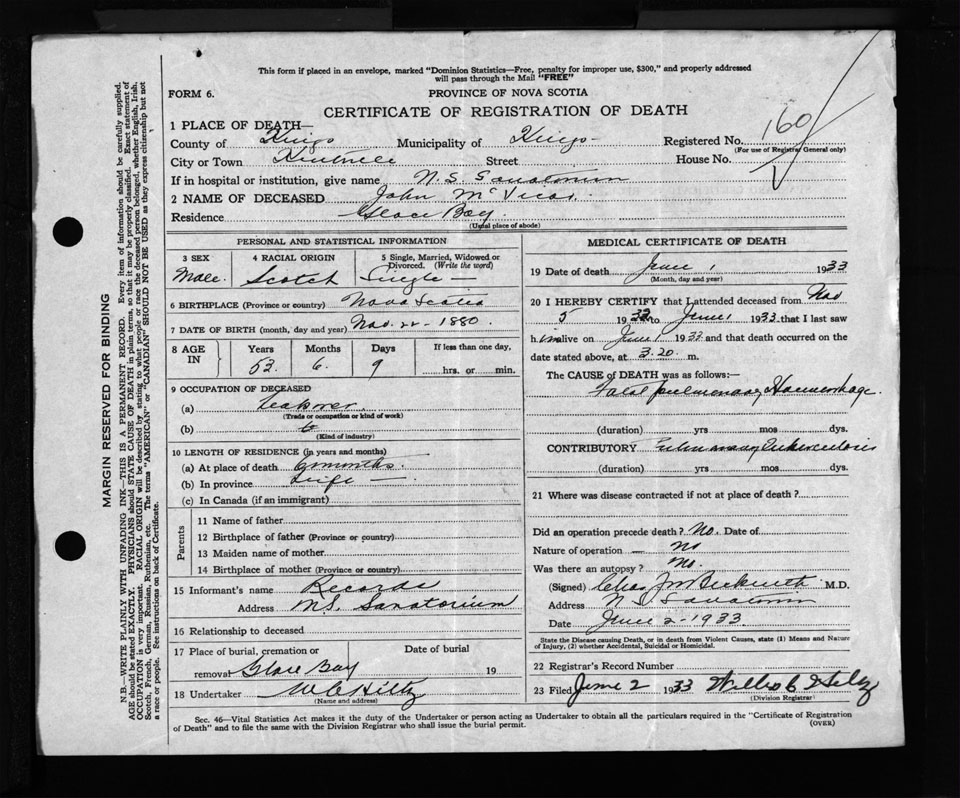 This form if placed in an envelope, marked "Dominion Statistics—Free, penalty for improper use, $300," and properly addressed
will pass through the Mail "FREE"
FORM 6.
PROVINCE OF NOVA SCOTIA
CERTIFICATE OF REGISTRATION OF DEATH
1 PLACE OF DEATH—
County of Kings Municipality of Kings Registered No. 160
(For use of Registrar General only)
City or Town Kentville Street House No.
If in hospital or institution, give name N. S. Sanatorium
2 NAME OF DECEASED John McVicar
Residence Glace Bay
(Usual place of abode)
PERSONAL AND STATISTICAL INFORMATION
3 SEX 4 RACIAL ORIGIN 5 Single, Married, Widowed or
Divorced. (Write the word)
Male. Scotch Single —
6 BIRTHPLACE (Province or country) Nova Scotia
7 DATE OF BIRTH (month, day and year) Nov. 22 - 1880.
8 AGE IN Years Months Days If less than one day,
53. 6. 9 hrs. or min.
9 OCCUPATION OF DECEASED
(a) Laborer
(Trade or occupation or kind of work)
(b)
(Kind of industry)
10 LENGTH OF RESIDENCE (in years and months)
(a) At place of death months.
(b) In province Life —
(c) In Canada (if an immigrant)
Parents
11 Name of father
12 Birthplace of father (Province or country)
13 Maiden name of mother
14 Birthplace of mother (Province or country)
15 Informant's name Records
Address N.S. Sanatorium
16 Relationship to deceased
17 Place of burial, cremation or Date of burial
removal Glace Bay 19
18 Undertaker W C Hiltz
(Name and address)
MEDICAL CERTIFICATE OF DEATH
19 Date of death June 1 1933
(Month, day and year)
20 I HEREBY CERTIFY that I attended deceased from Nov
5 1932 to June 1 1933 that I last saw
him alive on June 1 1933 and that death occurred on the
date stated above, at 3.20 m.
The CAUSE of DEATH was as follows:—
Fatal pulmonary Haemorrhage.
(duration) yrs mos dys.
CONTRIBUTORY Pulmonary Tuberculosis
(duration) yrs mos dys.
21 Where was disease contracted if not at place of death?
Did an operation precede death? No. Date of
Nature of operation — no
Was there an autopsy? No.
(Signed) Chas J W Beckwith M.D.
Address N S Sanatorium
Date June 2 - 1933.
State the Disease causing Death, or in death from Violent Causes, state (1) Means and Nature
of Injury, (2) whether Accidental, Suicidal or Homicidal.
22 Registrar's Record Number
23 Filed June 2 1933
(Division Registrar)
Sec. 46—Vital Statistics Act makes it the duty of the Undertaker or person acting as Undertaker to obtain all the particulars required in the "Certificate of Registration
of Death" and to file the same with the Division Registrar who shall issue the burial permit.
(OVER)
MARGIN RESERVED FOR BINDING
N.B.—WRITE PLAINLY WITH UNFADING INK—THIS IS A PERMANENT RECORD. Every item of information should be carefully supplied.
AGE should be stated EXACTLY. PHYSICIANS should STATE CAUSE OF DEATH in plain terms, so that it may be properly classified. Exact statement of
OCCUPATION is very important. RACIAL ORIGIN will be described by stating to what people or race the deceased person belonged, whether English, Irish,
Scotch, French, German, Russian, Ruthenian, etc. The terms "AMERICAN" or "CANADIAN" SHOULD NOT BE USED as they express citizenship but not
a race or people. See instructions on back of Certificate.